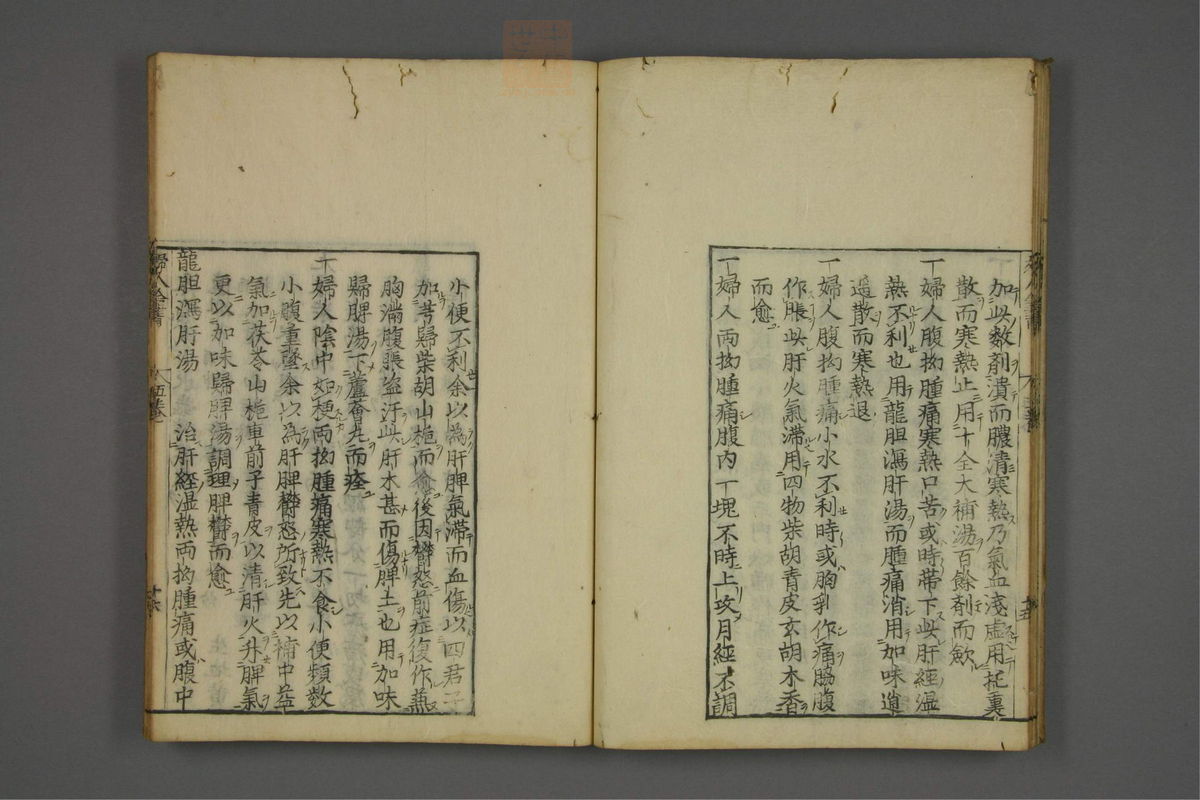 加此数剤潰而膿清寒熱乃氣血淺虚用托裏
散而寒熱止用十全大補湯百餘剤而歛
一婦人腹拗腫痛寒熱口苦或時帯下此肝經湿
熱不利也用龍胆瀉肝湯而腫痛消用加味逍
遥散而寒熱退
一婦人腹拗腫痛小水不利時或胸乳作痛脇腹
作脹此肝火氣滞用四物柴胡青皮玄胡木香
而愈
一婦人両拗腫痛腹内一塊不時上攻月經不調
小便不利余以為肝脾氣滞而血傷以四君子
加芎歸柴胡山梔而愈後因欝怒前症復作兼
胸滿腹脹盗汗此肝木甚而傷脾土也用加味
歸脾湯下蘆薈丸而痊
一婦人陰中如梗両拗腫痛寒熱不食小便頻数
小腹重墜余以為肝脾欝怒所致先以補中益
氣加茯苓山梔車前子青皮以清肝火升脾氣
更以加味歸脾湯調理脾欝而愈
龍胆瀉肝湯 治肝經湿熱両拗腫痛或腹中
婦人全書
五巻